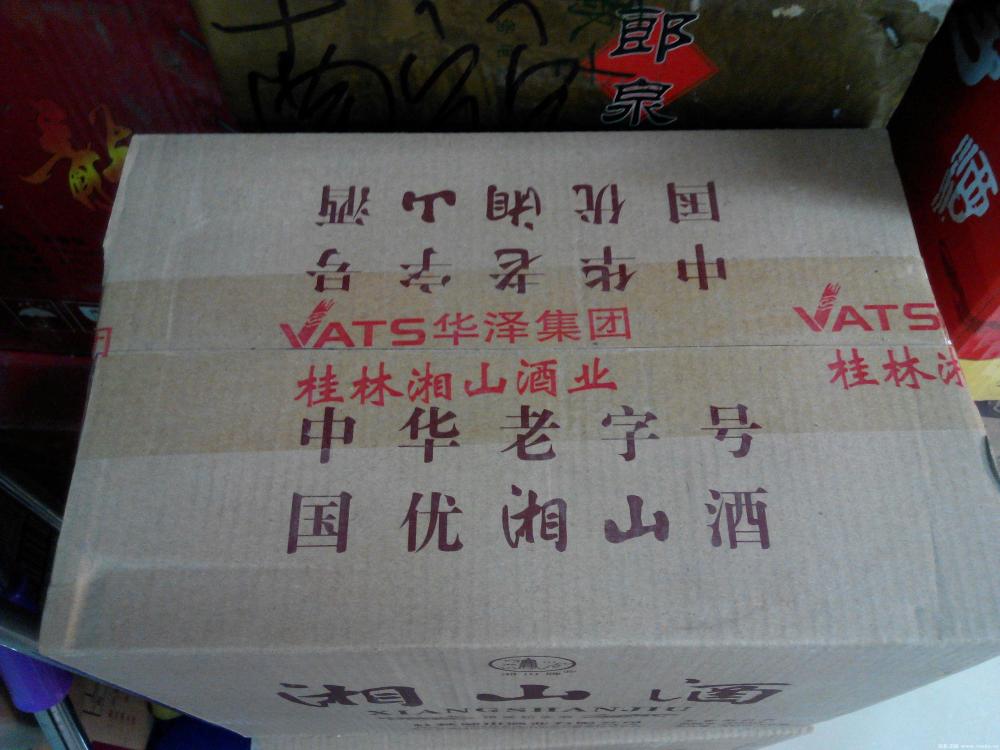 郎
泉
国优湘山酒
中华老字号
VATS华泽集团
VATS
桂林湘山酒业
桂林湘
中华老字号
国优湘山酒
湘山酒
XIANGSHANJIU